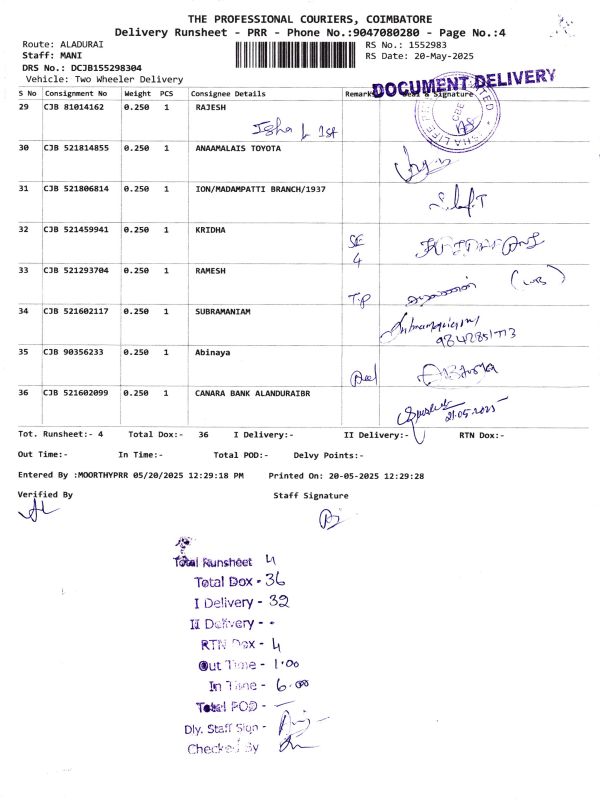 THE PROFESSIONAL COURIERS, COIMBATORE
Delivery Runsheet - PRR - Phone No.:9047080280 - Page No.:4
Route: ALADURAI
RS No.: 1552983
Staff: MANI
RS Date: 20-May-2025
DRS No.: DCJB155298304
Vehicle: Two Wheeler Delivery
DOCUMENT DELIVERY
S No Consignment No Weight PCS Consignee Details Remark Seal & Signature
29 CJB 81014162 0.250 1 RAJESH
30 CJB 521814855 0.250 1 ANAAMALAIS TOYOTA
31 CJB 521806814 0.250 1 ION/MADAMPATTI BRANCH/1937
32 CJB 521459941 0.250 1 KRIDHA
SE
4
33 CJB 521293704 0.250 1 RAMESH
T.P
34 CJB 521602117 0.250 1 SUBRAMANIAM
35 CJB 90356233 0.250 1 Abinaya
36 CJB 521602099 0.250 1 CANARA BANK ALANDURAIBR
21.05.2025
Tot. Runsheet:- 4 Total Dox:- 36 I Delivery:- II Delivery:- RTN Dox:-
Out Time:- In Time:- Total POD:- Delvy Points:-
Entered By :MOORTHYPRR 05/20/2025 12:29:18 PM Printed On: 20-05-2025 12:29:28
Verified By Staff Signature
Total Runsheet 4
Total Dox - 36
I Delivery - 32
II Delivery - -
RTN Dox - 4
Out Time - 1.00
In Time - 6.00
Total POD - —
Dly. Staff Sign -
Checked By